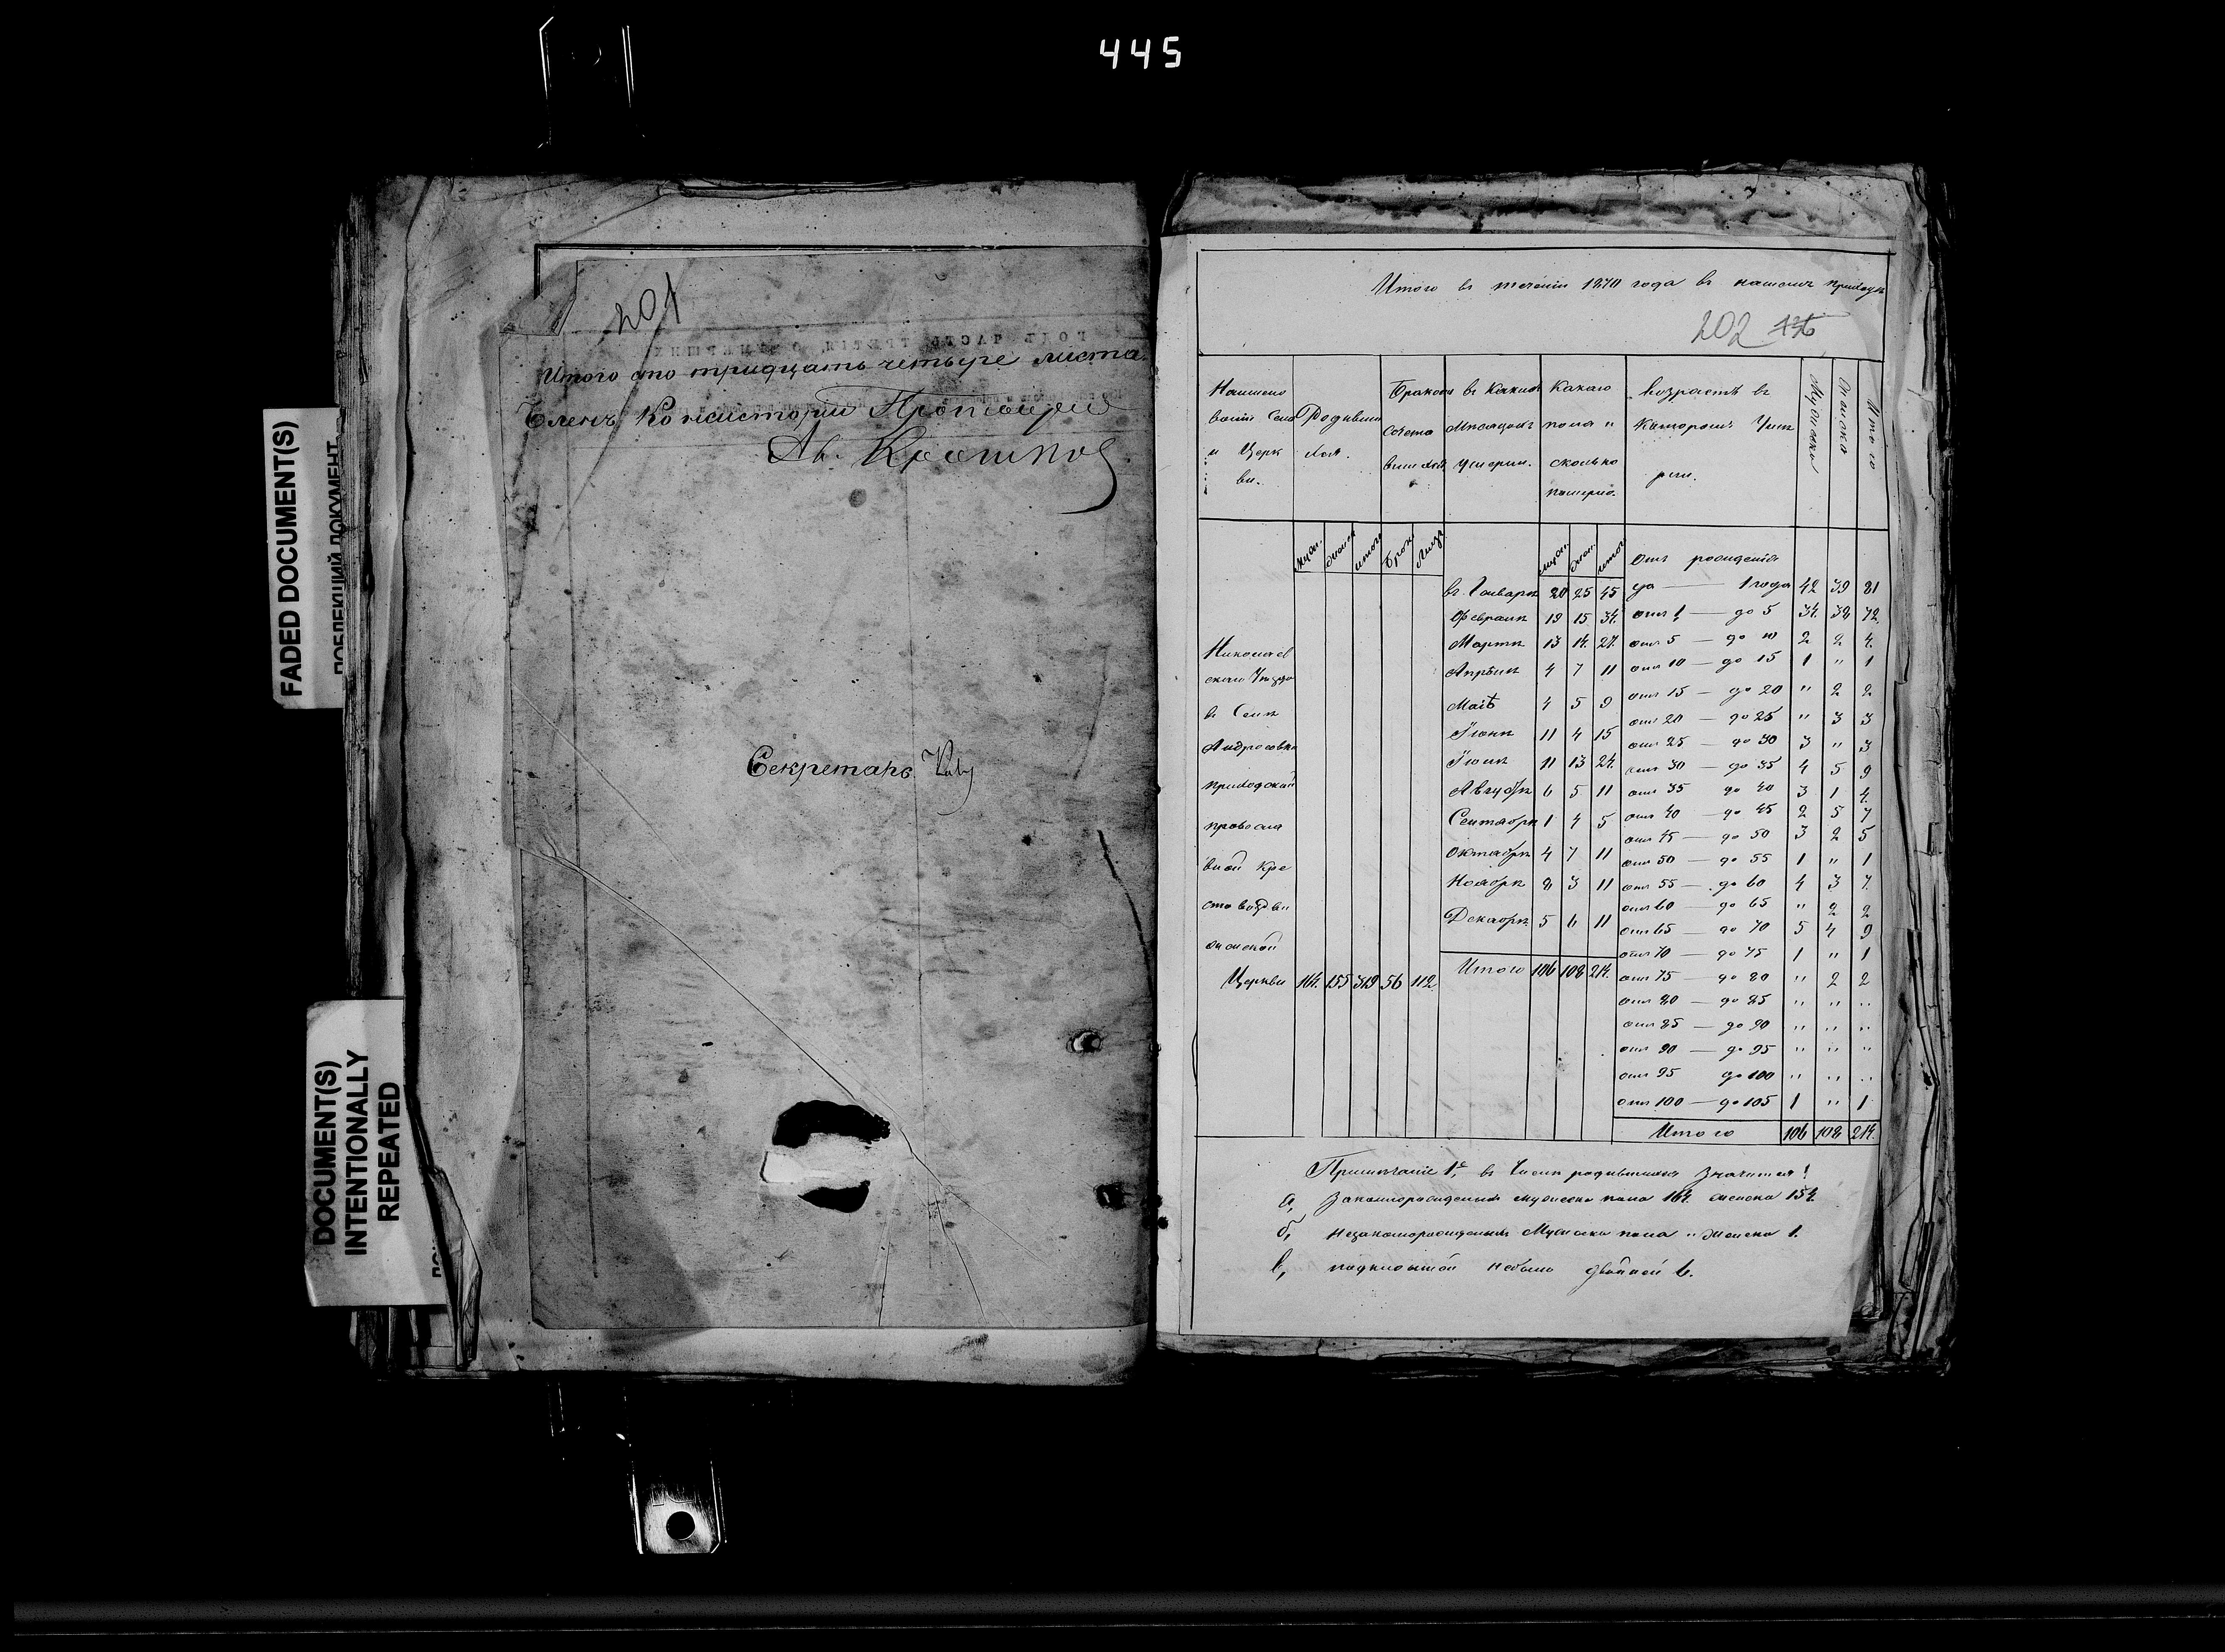 445
FADED DOCUMENT(S)
DOCUMENT(S)
INTENTIONALLY
REPEATED
201
Итого сто тридцать четыре листа.
Членъ Консисторіи Протоіерей
Секретарь
Итого въ теченіи 1870 года въ нашемъ приходѣ
202
Наимено
ваніе Села
и Церк
ви.
Родивши
хся.
Браковъ
сочета
вшихся
въ какихъ
мѣсяцахъ
умерли.
какаго
пола и
сколько
померло.
возрастъ въ
которомъ Уме
рли.
Мужска
Женска
Итого
муж. женс. итого Брак. Лицъ
муж. жен. итого
отъ рожденія
въ Январѣ 20 25 45 до — 1 года 42 39 81
Февралѣ 19 15 34. отъ 1 — до 5 34. 38 72.
Мартѣ 13 14. 27. отъ 5 — до 10 2 2 4.
Апрѣлѣ 4 7 11 отъ 10 — до 15 1 " 1
Маѣ 4 5 9 отъ 15 — до 20 " 2 2
отъ 20 — до 25 " 3 3
Іюнѣ 11 4 15 отъ 25 — до 30 3 " 3
Іюлѣ 11 13 24. отъ 30 — до 35 4 5 9
Августѣ 6 5 11 отъ 35 до 40 3 1 4.
Сентябрѣ 1 4 5 отъ 40 — до 45 2 5 7
отъ 45 — до 50 3 2 5
Октябрѣ 4 7 11 отъ 50 — до 55 1 " 1
Ноябрѣ 8 3 11 отъ 55 — до 60 4 3 7.
отъ 60 до 65 " 2 2
Декабрѣ 5 6 11 отъ 65 — до 70 5 4 9
отъ 70 — до 75 1 " 1
Итого 106 108 214. отъ 75 — до 80 " 2 2
отъ 80 — до 85 " " "
отъ 85 — до 90 " " "
отъ 90 — до 95 " " "
отъ 95 до 100 " " "
отъ 100 — до 105 1 " 1
Итого 106 108 214.
Николаев
скаго Уѣзда
въ Селѣ
Андросовкѣ
приходской
правосла
вной Кре
стовоздви
женской
Церкви 164. 155 319 56 112.
Примѣчаніе 1е, въ числѣ родившихся значится:
а, Законнорожденныхъ мужеска пола 164. женска 154.
б, Незаконнорожденныхъ Мужеска пола " Женска 1.
в, подкидышей небыло двойней 6.